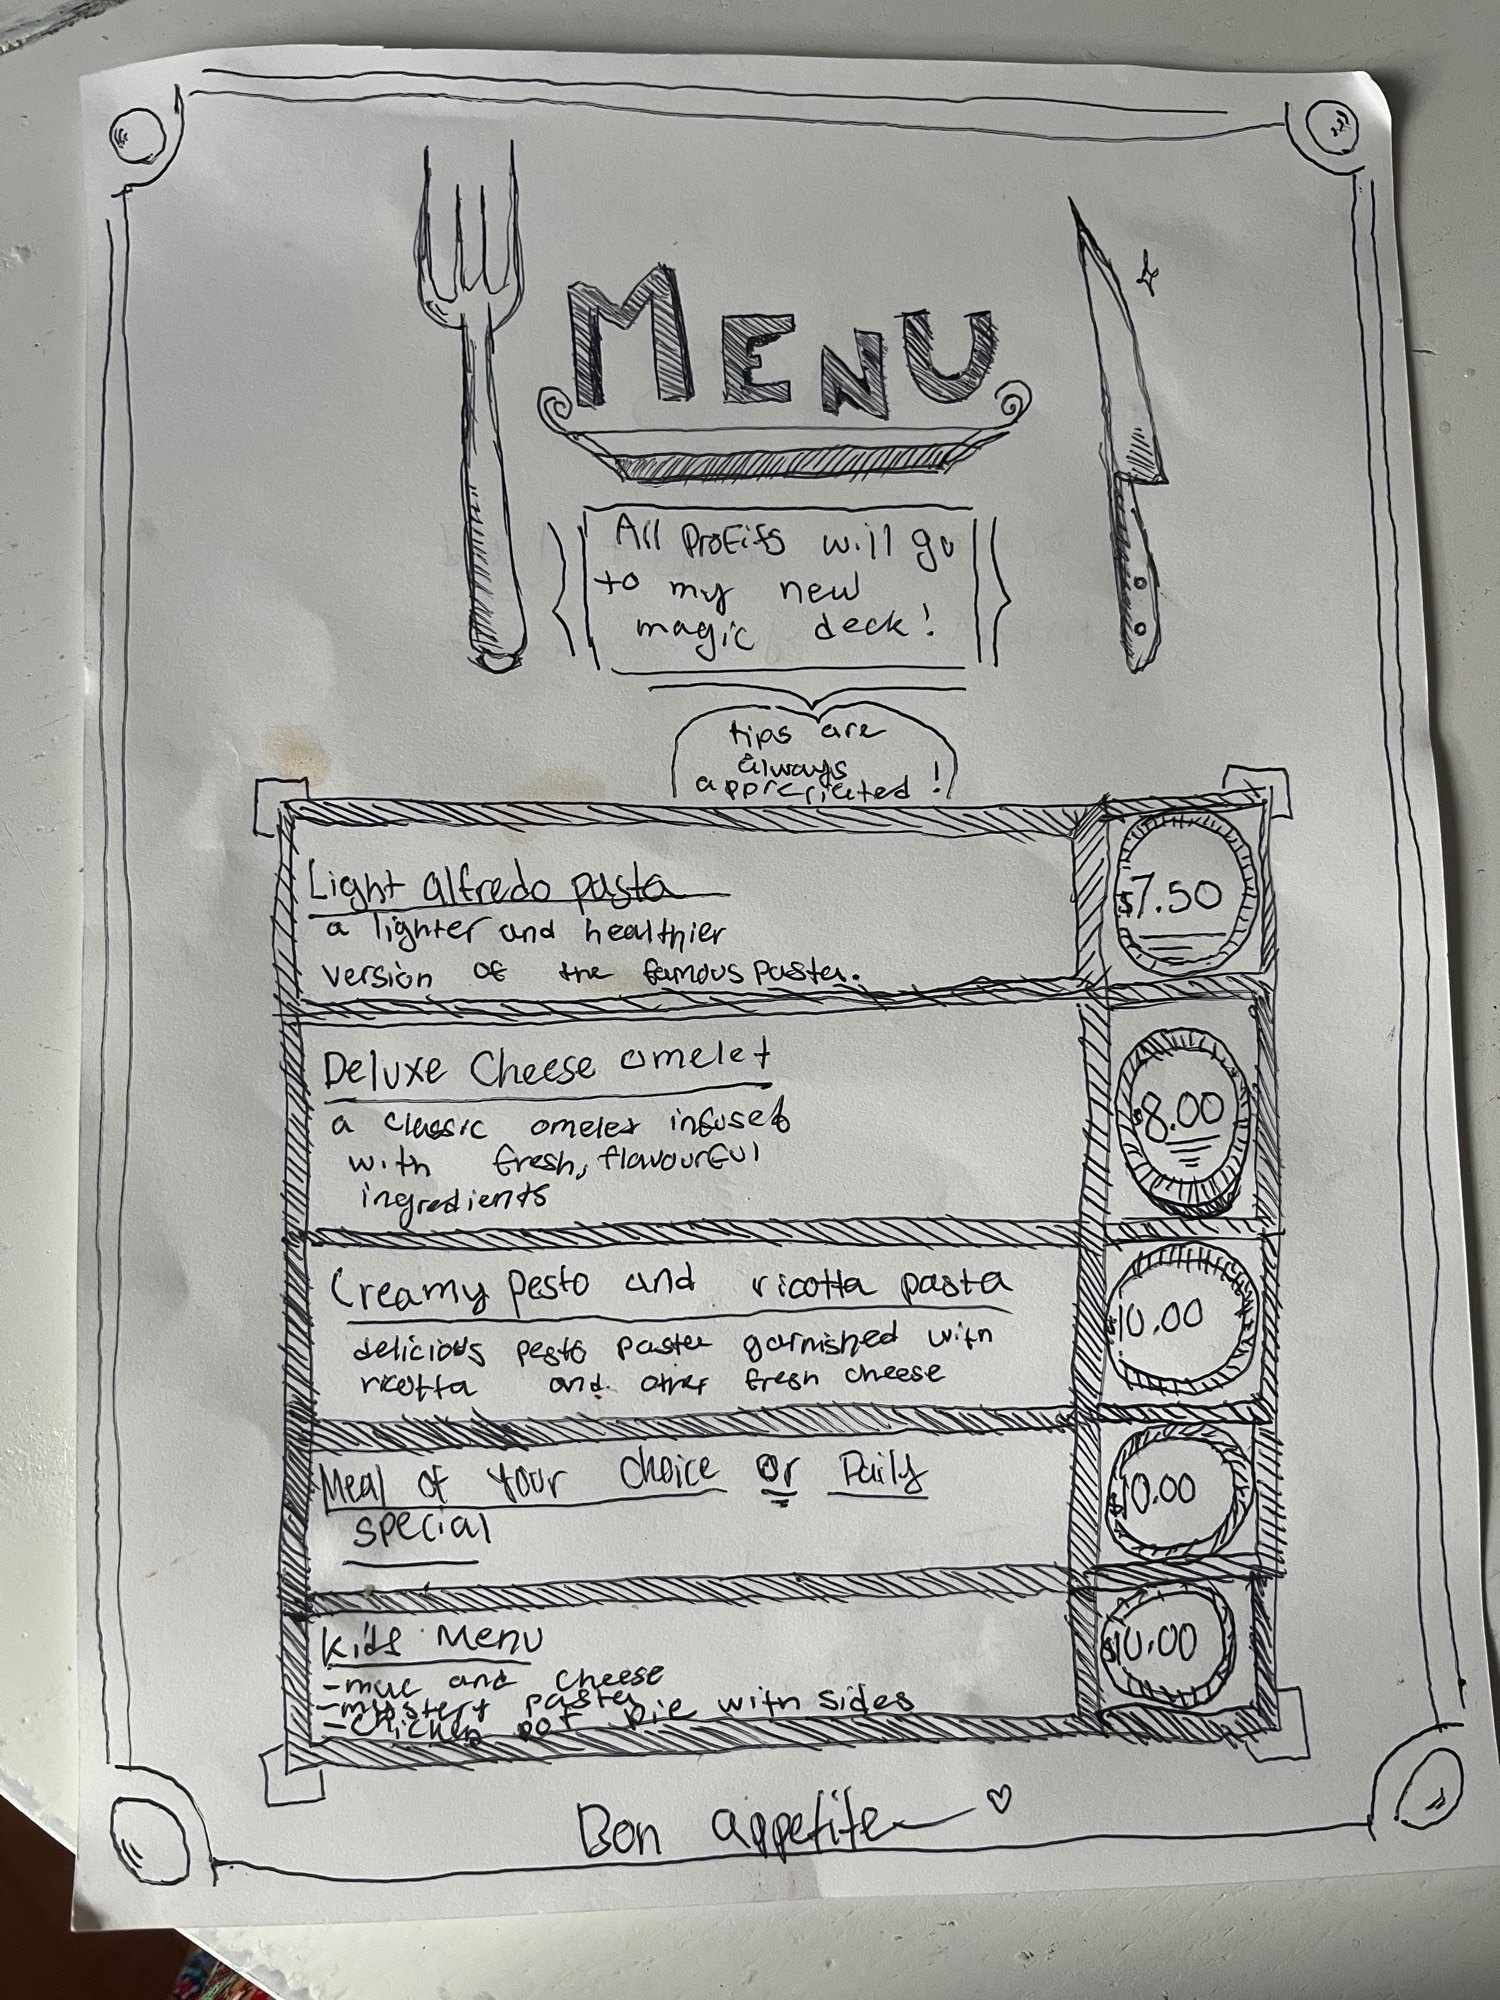 MENU
All profits will go
to my new
magic deck!
tips are
always
appreciated!
Light alfredo pasta
$7.50
a lighter and healthier
version of the famous pasta.
Deluxe Cheese omelet
$8.00
a classic omelet infused
with fresh, flavourful
ingredients
Creamy pesto and ricotta pasta
$10.00
delicious pesto pasta garnished with
ricotta and other fresh cheese
Meal of your choice or Daily
special
$10.00
Kids Menu
$10.00
-mac and cheese
-mystery pasta
-chicken pot pie with sides
Bon appetite